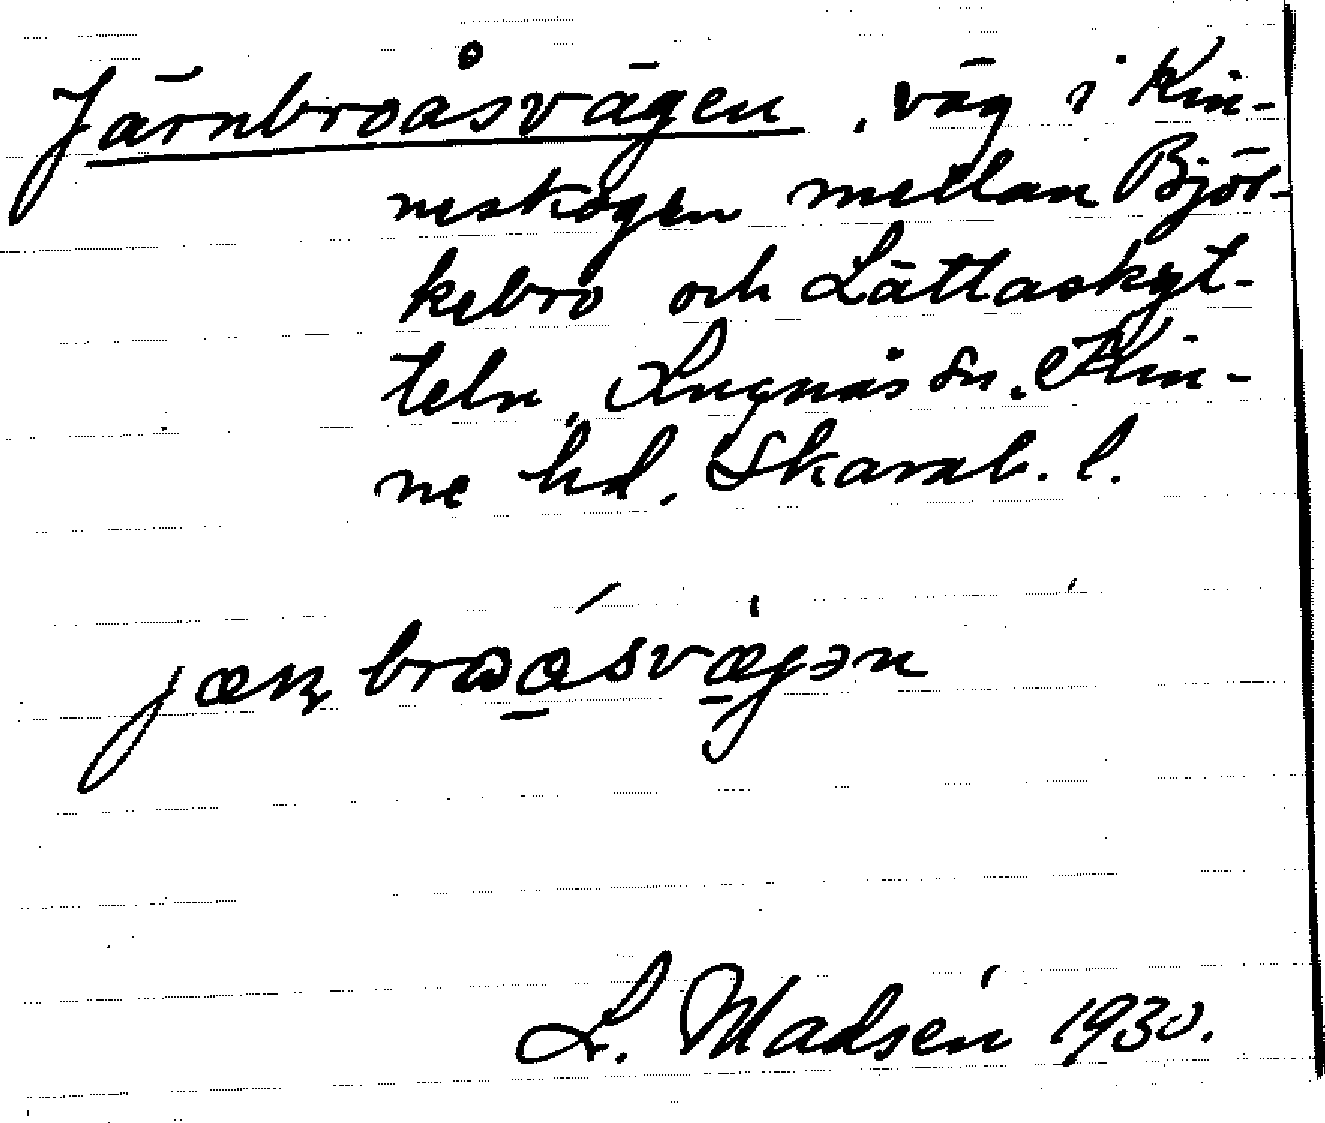 Järnbroåsvägen, väg i Kin-
neskogen mellan Björ-
kebro och Lättaskyt-
teln, Lugnås sn. Kin-
ne hd. Skarab. l.
L. Madsén 1930.